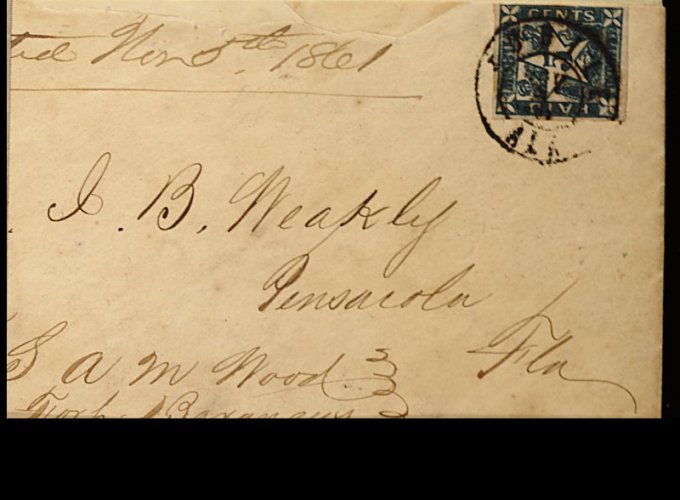 Nov 5th, 1861
CENTS
PAID
ALA
J. B. Weakly
Pensacola
Fla
S A M Wood